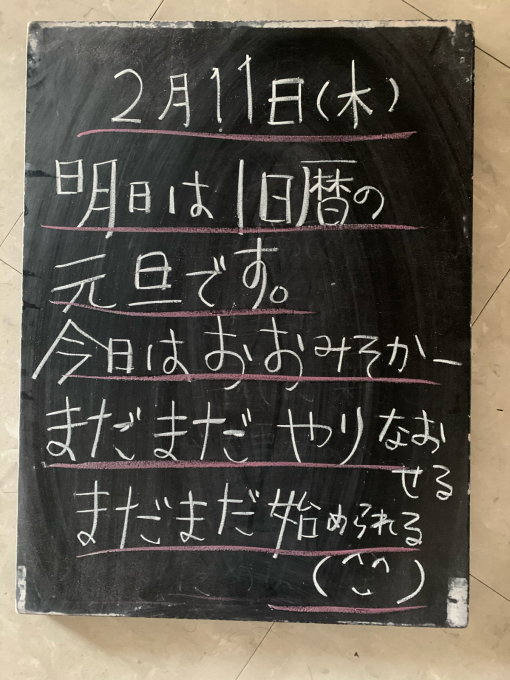 2月11日(木)
明日は旧暦の
元旦です。
今日はおおみそかー
まだまだ やりなおせる
まだまだ始められる
(^‿^)